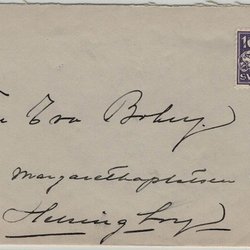 Eva Boberg
Margarethaplatsen
Helsingborg